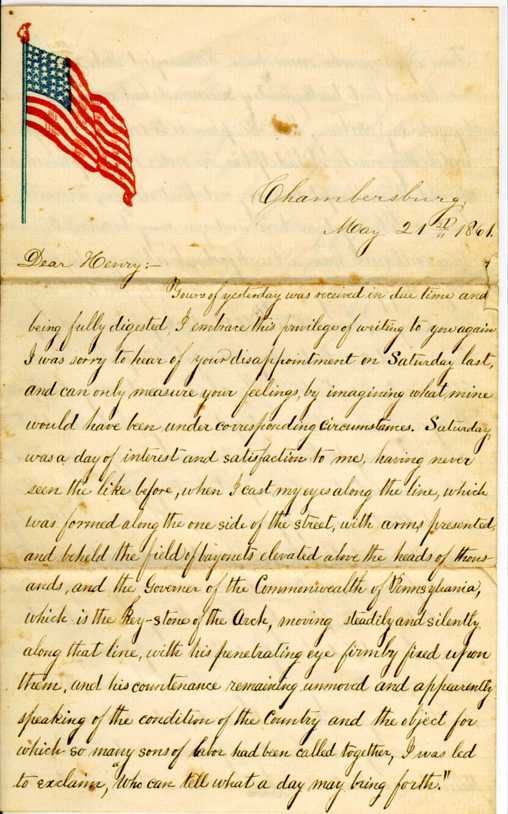 Chambersburg,
May 21st 1861.
Dear Henry:—
Yours of yesterday was received in due time and
being fully digested I embrace this privilege of writing to you again
I was sorry to hear of your disappointment on Saturday last,
and can only measure your feelings, by imagining what mine
would have been under corresponding circumstances. Saturday,
was a day of interest and satisfaction to me, having never
seen the like before, when I cast my eyes along the line, which
was formed along the one side of the street, with arms presented,
and beheld the field of bayonets elevated above the heads of thous-
ands, and the Governer of the Commonwealth of Pennsylvania,
which is the Key-stone of the Arch, moving steadily and silently
along that line, with his penetrating eye firmly fixed upon
them, and his countenance remaining unmoved and appearently
speaking of the condition of the Country and the object for
which so many sons of labor had been called together, I was led
to exclaim, "Who can tell what a day may bring forth."